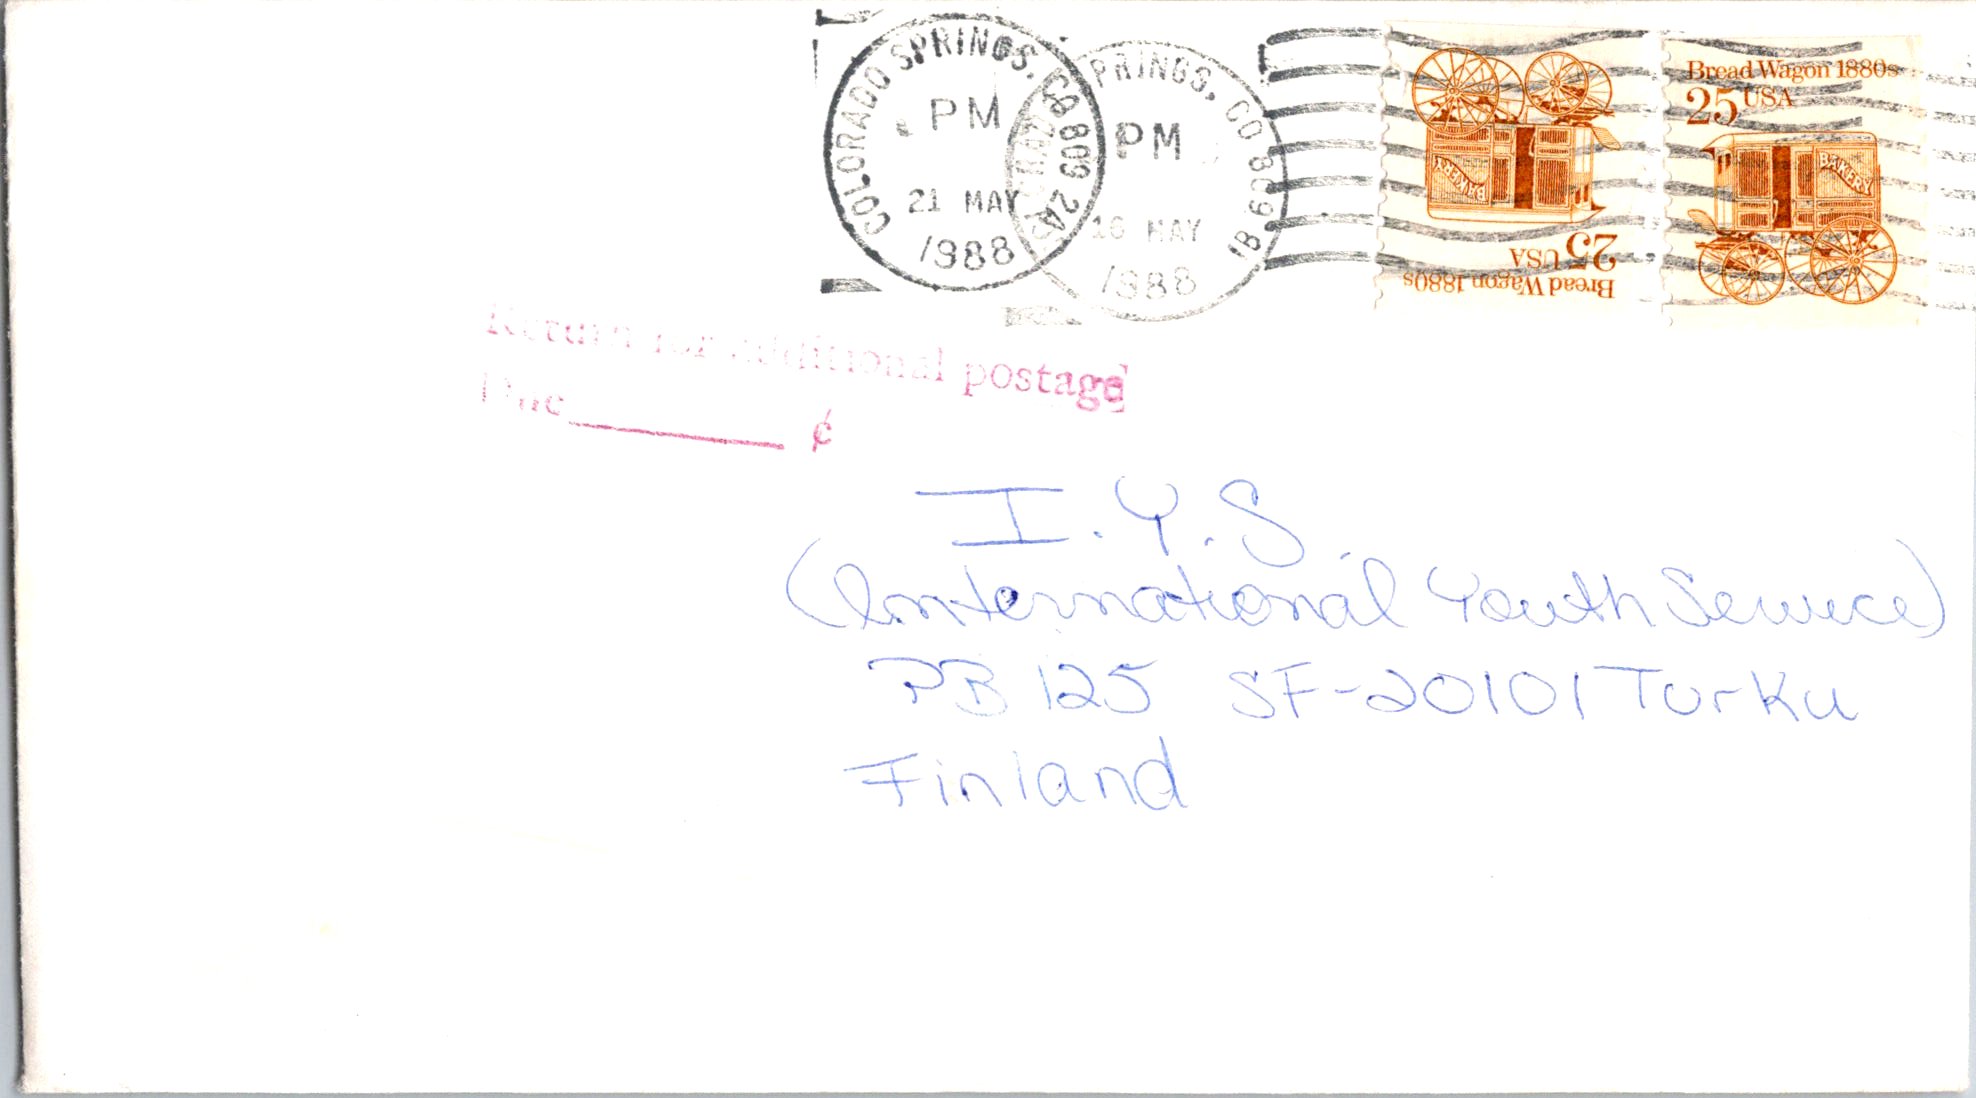 COLORADO SPRINGS, CO 809 2A
PM
21 MAY
1988
PRINGS, CO 809 1B
PM
16 MAY
1988
Bread Wagon 1880s
25 USA
BAKERY
Bread Wagon 1880s
25 USA
BAKERY
Return for additional postage
Due ¢
I.Y.S
(International Youth Service)
PB 125 SF-20101 Turku
Finland